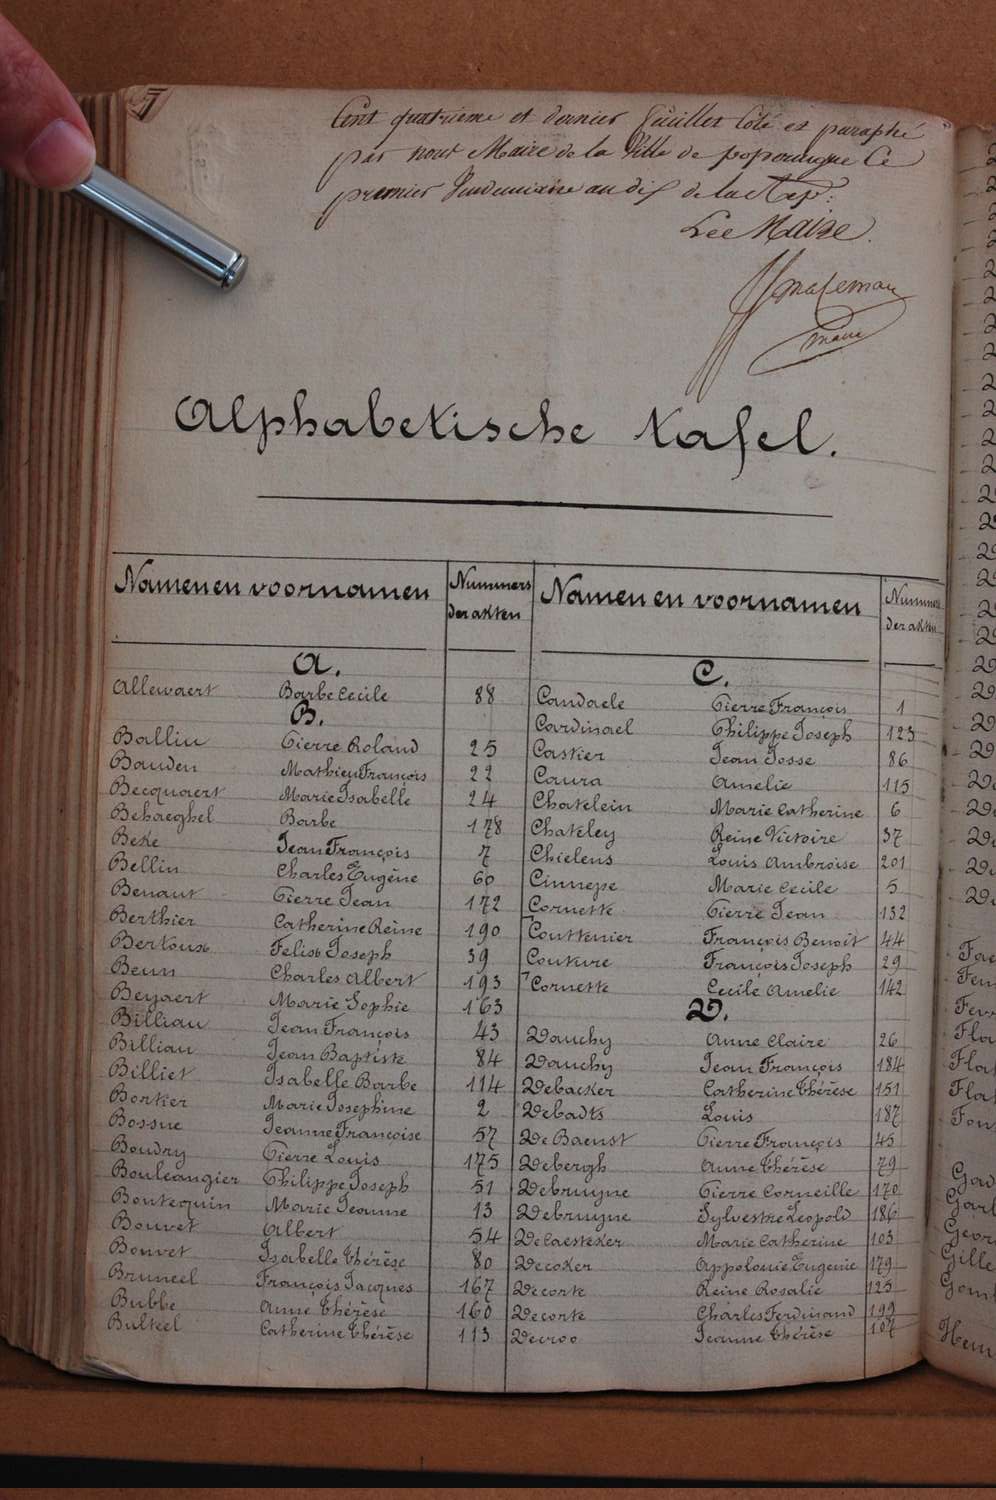 Cent quatrieme et dernier feuillet coté et paraphé
par nous Maire de la Ville de poperingue Ce
premier Vendemiaire an dix de la Rep:
Lee Maire.
maire
Alphabetische tafel.
Namen en voornamen Nummers der akten
A.
Allewaert Barbe Cecile 88
B.
Balliu Pierre Roland 25
Bauden Mathieu François 22
Becquaert Marie Isabelle 24
Behaeghel Barbe 178
Beke Jean François 7
Bellin Charles Eugène 60
Benaut Pierre Jean 172
Berthier Catherine Reine 190
Bertoux Felix Joseph 39
Beun Charles Albert 193
Beyaert Marie Sophie 163
Billiau Jean François 43
Billiau Jean Baptiste 84
Billiet Isabelle Barbe 114
Bonker Marie Josephine 2
Bossue Jeanne Françoise 57
Boudry Pierre Louis 175
Bouleangier Philippe Joseph 51
Boutequin Marie Jeanne 13
Bouvet Albert 54
Bouvet Isabelle Thérèse 80
Bruneel François Jacques 167
Bubbe Anne Thérèse 160
Bulteel Catherine Thérèse 113
Namen en voornamen Nummers der akten
C.
Candaele Pierre François 1
Cardinael Philippe Joseph 123
Caskier Jean Josse 86
Caura Amelie 115
Chatelein Marie Catherine 6
Chateley Reine Victoire 37
Chielens Louis Ambroise 201
Cinnepe Marie Cecile 5
Cornette Pierre Jean 132
Couttenier François Benoit 44
Couture François Joseph 29
Cornette Cecile Amelie 142
D.
Dauchy Anne Claire 26
Dauchy Jean François 184
Debacker Catherine Thérèse 151
Debadts Louis 187
De Baenst Pierre François 45
Debergh Anne Thérèse 79
Debruyne Pierre Corneille 170
Debruyne Sylvestre Leopold 186
Decaesteker Marie Catherine 103
Decoker Appolonie Eugenie 179
Decorte Reine Rosalie 125
Decorte Charles Ferdinand 199
Decroo Jeanne Thérèse 107